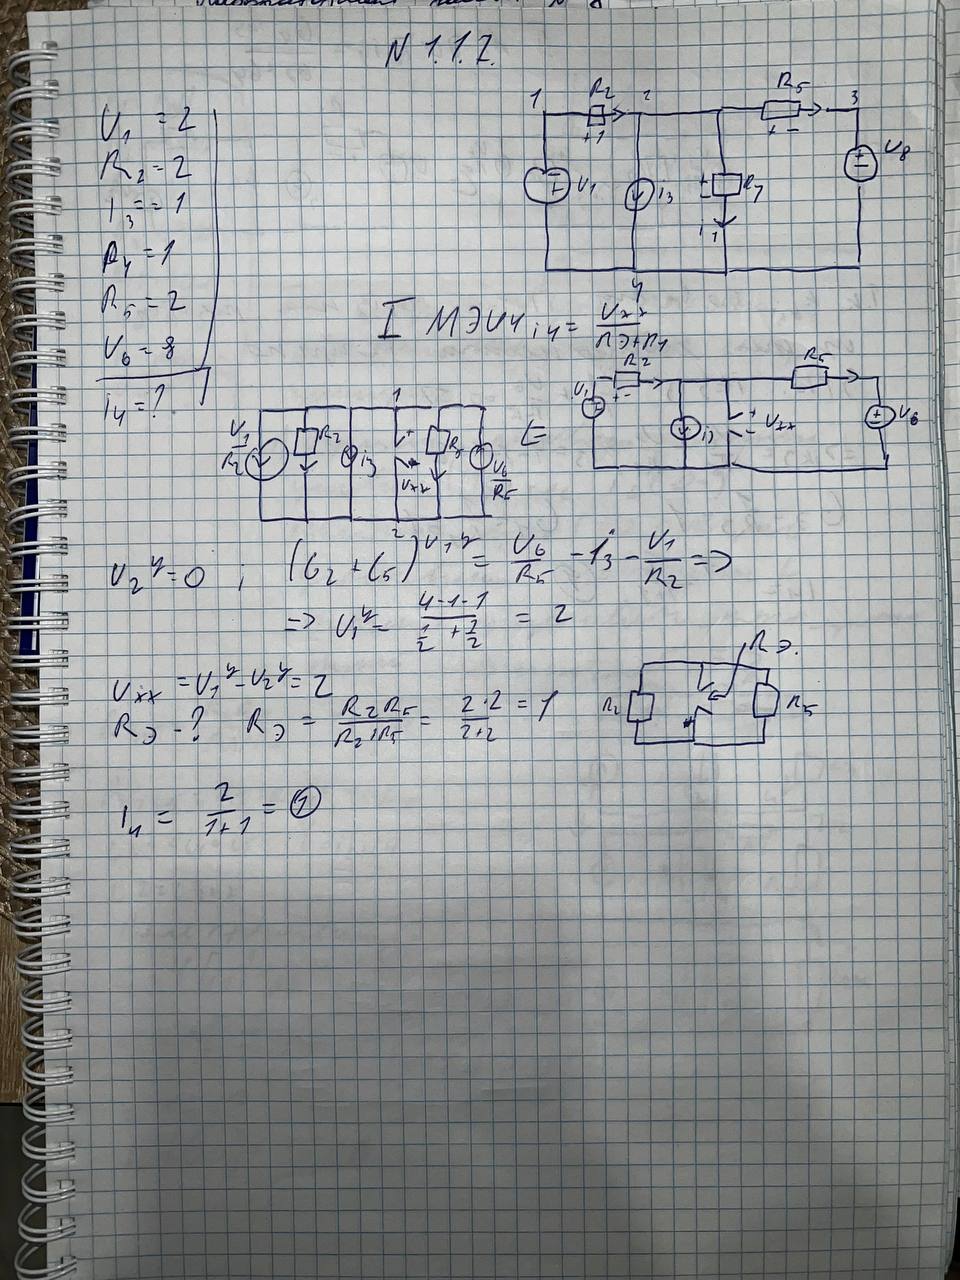 N 1.1.2.
U₁ = 2
R₂ = 2
i₃ = 1
R₄ = 1
R₅ = 2
U₆ = 8
i₄ = ?
1 R₂ 2 R₅ 3
+ -
U₁ i₃ U₈
4
I МЭИЧ i₄ = Uхх / (RЭ+R₄)
U₁ R₂ R₅
+ -
i₃ Uхх U₆
U₁/R₂ R₂ i₃ 1 Uхх R₅ U₆/R₅
2
U₂ʸ = 0 ; (G₂ + G₅) U₁ʸ = U₆/R₅ - i₃ - U₁/R₂ =>
=> U₁ʸ = (4-1-1) / (1/2 + 1/2) = 2
Uхх = U₁ʸ - U₂ʸ = 2
RЭ - ? RЭ = R₂R₅ / (R₂+R₅) = 2·2 / (2+2) = 1
RЭ.
R₂ R₅
i₄ = 2 / (1+1) = 1